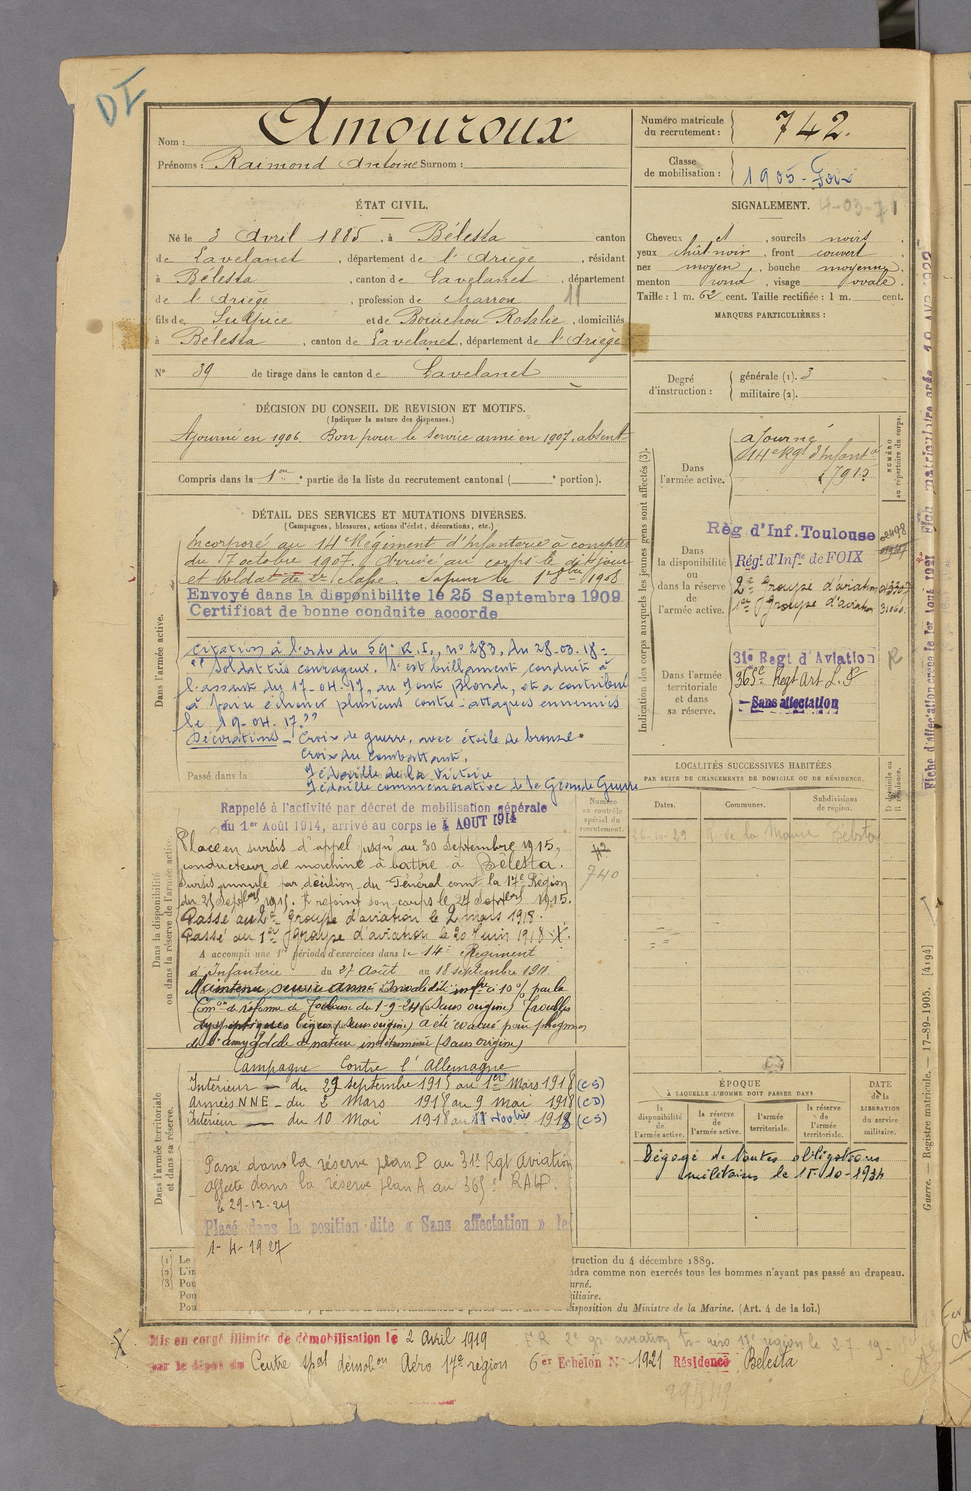 DI
Nom : Amouroux
Prénoms : Raimond Antoine Surnom :
Numéro matricule du recrutement : 742.
Classe de mobilisation : 1905 - Foix
ÉTAT CIVIL.
Né le 3 Avril 1885, à Bélesta canton
de Lavelanet, département de l'Ariège, résidant
à Bélesta, canton de Lavelanet, département
de l'Ariège, profession de charron 11
fils de Sulpice et de Bouichou Rosalie, domiciliés
à Bélesta, canton de Lavelanet, département de l'Ariège
N° 39 de tirage dans le canton de Lavelanet
SIGNALEMENT.
Cheveux et, sourcils noirs,
yeux chât noir, front couvert
nez moyen, bouche moyenne,
menton rond, visage ovale.
Taille : 1 m. 62 cent. Taille rectifiée : 1 m. cent.
MARQUES PARTICULIÈRES :
Degré d'instruction : générale (1). 3
militaire (2).
DÉCISION DU CONSEIL DE REVISION ET MOTIFS.
(Indiquer la nature des dispenses.)
Ajourné en 1906. Bon pour le service armé en 1907, absent
Compris dans la 1ère partie de la liste du recrutement cantonal ( portion).
DÉTAIL DES SERVICES ET MUTATIONS DIVERSES.
(Campagnes, blessures, actions d'éclat, décorations, etc.)
Dans l'armée active.
Incorporé au 14e Régiment d'Infanterie à compter
du 7 octobre 1907. Arrivé au corps le dit jour
et soldat de 2e classe. Sapeur le 1908
Envoyé dans la disponibilite le 25 Septembre 1909
Certificat de bonne conduite accorde
Citation à l'ordre du 59e R.I., n° 283, du 28-03.18 =
"Soldat très courageux. S'est brillamment conduit à
l'assaut du 17-04-17, au Mont Blond, et a contribué
à faire échouer plusieurs contre-attaques ennemies
le 19-04.17."
Décorations - Croix de guerre, avec étoile de bronze.
Croix du combattant.
Médaille de la Victoire
Médaille commémorative de la Grande Guerre
Passé dans la
Rappelé à l'activité par décret de mobilisation générale
du 1er Août 1914, arrivé au corps le 4 AOUT 1914
Dans la disponibilité ou dans la réserve de l'armée active.
Placé en sursis d'appel jusqu'au 30 Septembre 1915,
conducteur de machine à battre à Bélesta.
Sursis annulé par décision du Général comt la 17e Région
du 1915. A rejoint son corps le 1915.
Passé au 2e Groupe d'aviation le 2 mars 1918.
Passé au 1er Groupe d'aviation le 20 Juin 1918
A accompli une 1re période d'exercices dans le 14e Régiment
d'Infanterie du 27 Août au 18 septembre 1911
Maintenu service armé Invalidité infre à 10 % par la
Comon de réforme de Toulouse du 1-9-24 (sans origine) Troubles
dyspeptiques légers (sans origine) a été évacué pour phlegmon
de l'amygdale de nature indéterminée (sans origine)
Numéro au contrôle spécial du recrutement.
740
Dans l'armée territoriale et dans sa réserve.
Campagne contre l'Allemagne
Intérieur - du 29 septembre 1915 au 1er Mars 1918 (CS)
Armées NNE - du 2 Mars 1918 au 9 mai 1918 (CD)
Intérieur - du 10 Mai 1918 au 1918 (CS)
Passé dans la réserve plan P au 31e Rgt Aviation
affecté dans la réserve plan A au 365e RALP.
le 29-12-24
Placé dans la position dite « Sans affectation » le
1-4-1927
Indication des corps auxquels les jeunes gens sont affectés (3).
NUMÉRO au répertoire du corps.
Dans l'armée active.
ajourné
14e Rgt d'Infantie
Dans la disponibilité ou dans la réserve de l'armée active.
Règ d'Inf. Toulouse
Régt d'Infie de FOIX
2e Groupe d'aviation
1er Groupe d'aviation
Dans l'armée territoriale et dans sa réserve.
31e Regt d'Aviation
365e Regt Art L. P
Sans affectation
LOCALITÉS SUCCESSIVES HABITÉES
PAR SUITE DE CHANGEMENTS DE DOMICILE OU DE RÉSIDENCE.
Dates. Communes. Subdivisions de région. Domicile ou Résidence.
R. de la Mairie Bélesta
ÉPOQUE
À LAQUELLE L'HOMME DOIT PASSER DANS
la disponibilité de l'armée active. la réserve de l'armée active. l'armée territoriale. la réserve de l'armée territoriale.
DATE de la LIBÉRATION du service militaire.
Dégagé de toutes obligations
militaires le 15-10-1934
(1) Le
(2) L'in
(3) Pou
Pou
Pou
truction du 4 décembre 1889.
dra comme non exercés tous les hommes n'ayant pas passé au drapeau.
urné.
iliaire.
disposition du Ministre de la Marine. (Art. 4 de la loi.)
Mis en congé illimité de démobilisation le 2 Avril 1919
par le dépôt du Centre spal démobon Aéro 17e région 6er Echelon N° 1921 Résidence Bélesta
Guerre. — Registre matricule. — 17-89-1905. [4194]